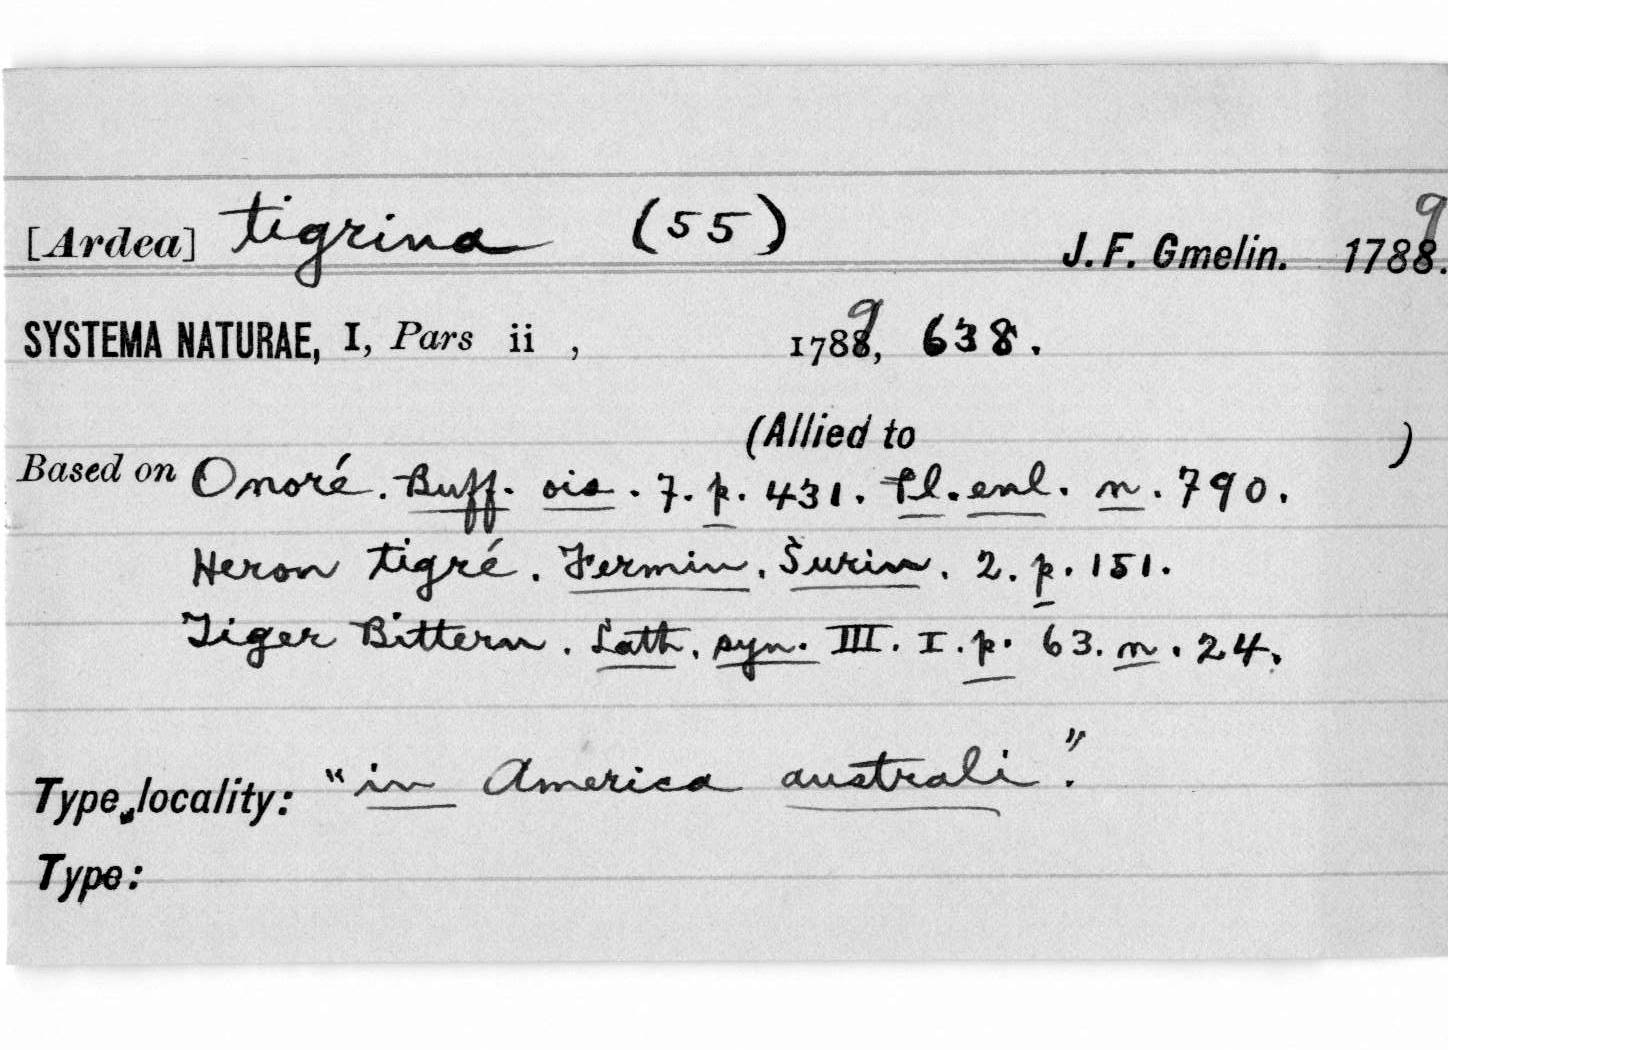 [Ardea] tigrina (55) J. F. Gmelin. 1788. 9
SYSTEMA NATURAE, I, Pars ii , 1788, 9 638.
(Allied to )
Based on Onoré. Buff. ois. 7. p. 431. Pl. enl. n. 790.
Heron tigré. Fermin. Surin. 2. p. 151.
Tiger Bittern. Lath. syn. III. I. p. 63. n. 24.
Type locality: "in America australi".
Type: